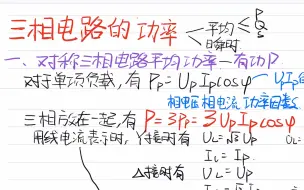 三相电路的功率
平均 P Q S
瞬时
一、对称三相电路平均功率—有功P
对于单项负载,有 Pp=UpIpcosφ
相电压相电流 功率因数
三相放在一起,有 P=3Pp=3UpIpcosφ
用线电流表示时,Y接时有 UL=√3Up
IL=Ip
△接时有 UL=Up